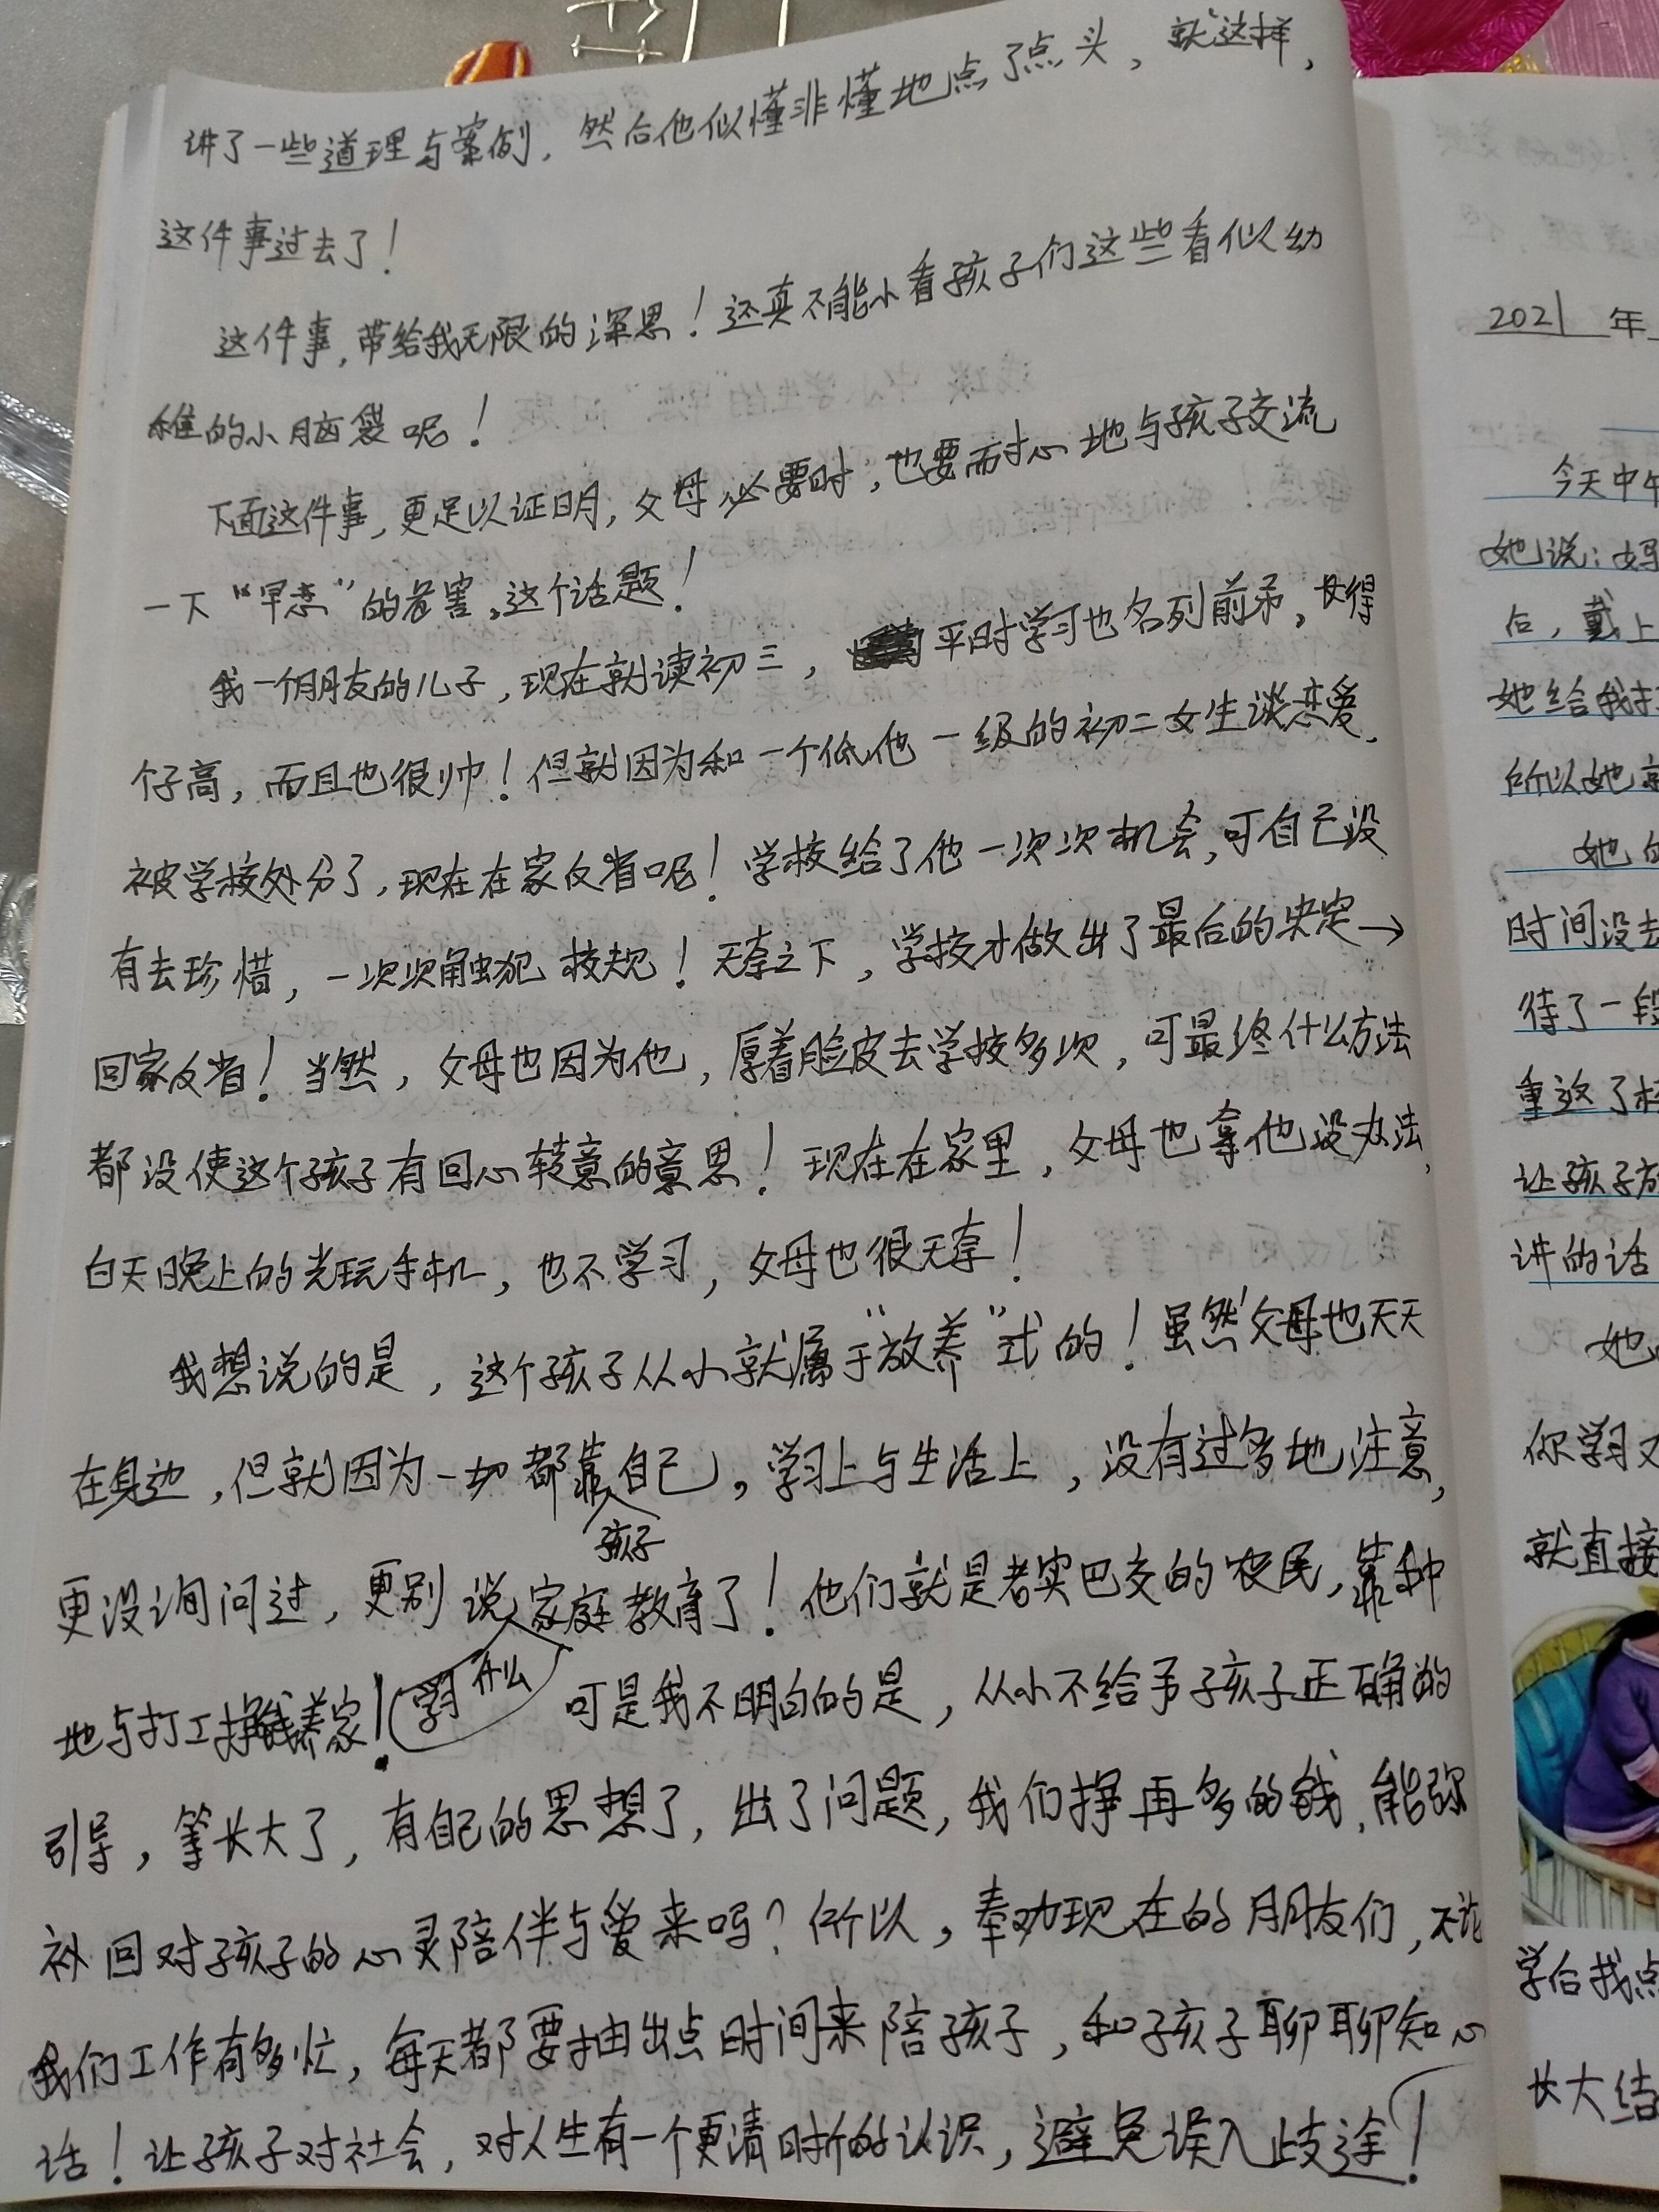 讲了一些道理与案例，然后他似懂非懂地点了点头，就这样，
这件事过去了！
这件事，带给我无限的深思！还真不能小看孩子们这些看似幼
稚的小脑袋呢！
下面这件事，更足以证明，父母必要时，也要耐心地与孩子交流
一下“早恋”的危害。这个话题！
我一个朋友的儿子，现在就读初三，平时学习也名列前矛，长得
个子高，而且也很帅！但就因为和一个低他一级的初二女生谈恋爱，
被学校处分了，现在在家反省呢！学校给了他一次次机会，可自己没
有去珍惜，一次次触犯校规！无奈之下，学校才做出了最后的决定→
回家反省！当然，父母也因为他，厚着脸皮去学校多次，可最终什么方法
都没使这个孩子有回心转意的意思！现在在家里，父母也拿他没办法，
白天晚上的光玩手机，也不学习，父母也很无奈！
我想说的是，这个孩子从小就属于“放养”式的！虽然父母也天天
在身边，但就因为一切都靠孩子自己，学习上与生活上，没有过多地注意，
更没询问过，更别说学习什么家庭教育了！他们就是老实巴交的农民，靠种
地与打工挣钱养家！可是我不明白的是，从小不给予孩子正确的
引导，等长大了，有自己的思想了，出了问题，我们挣再多的钱，能弥
补回对孩子的心灵陪伴与爱来吗？所以，奉劝现在的朋友们，不论
我们工作有多忙，每天都要抽出点时间来陪孩子，和孩子聊聊知心
话！让孩子对社会，对人生有一个更清晰的认识，避免误入歧途！
2021 年
今天中午
她说：妈
后，戴上
她给我打
所以她就
她的
时间没去
待了一段
重返了校
让孩子放
讲的话
她
你学习又
就直接
学会找点
长大结